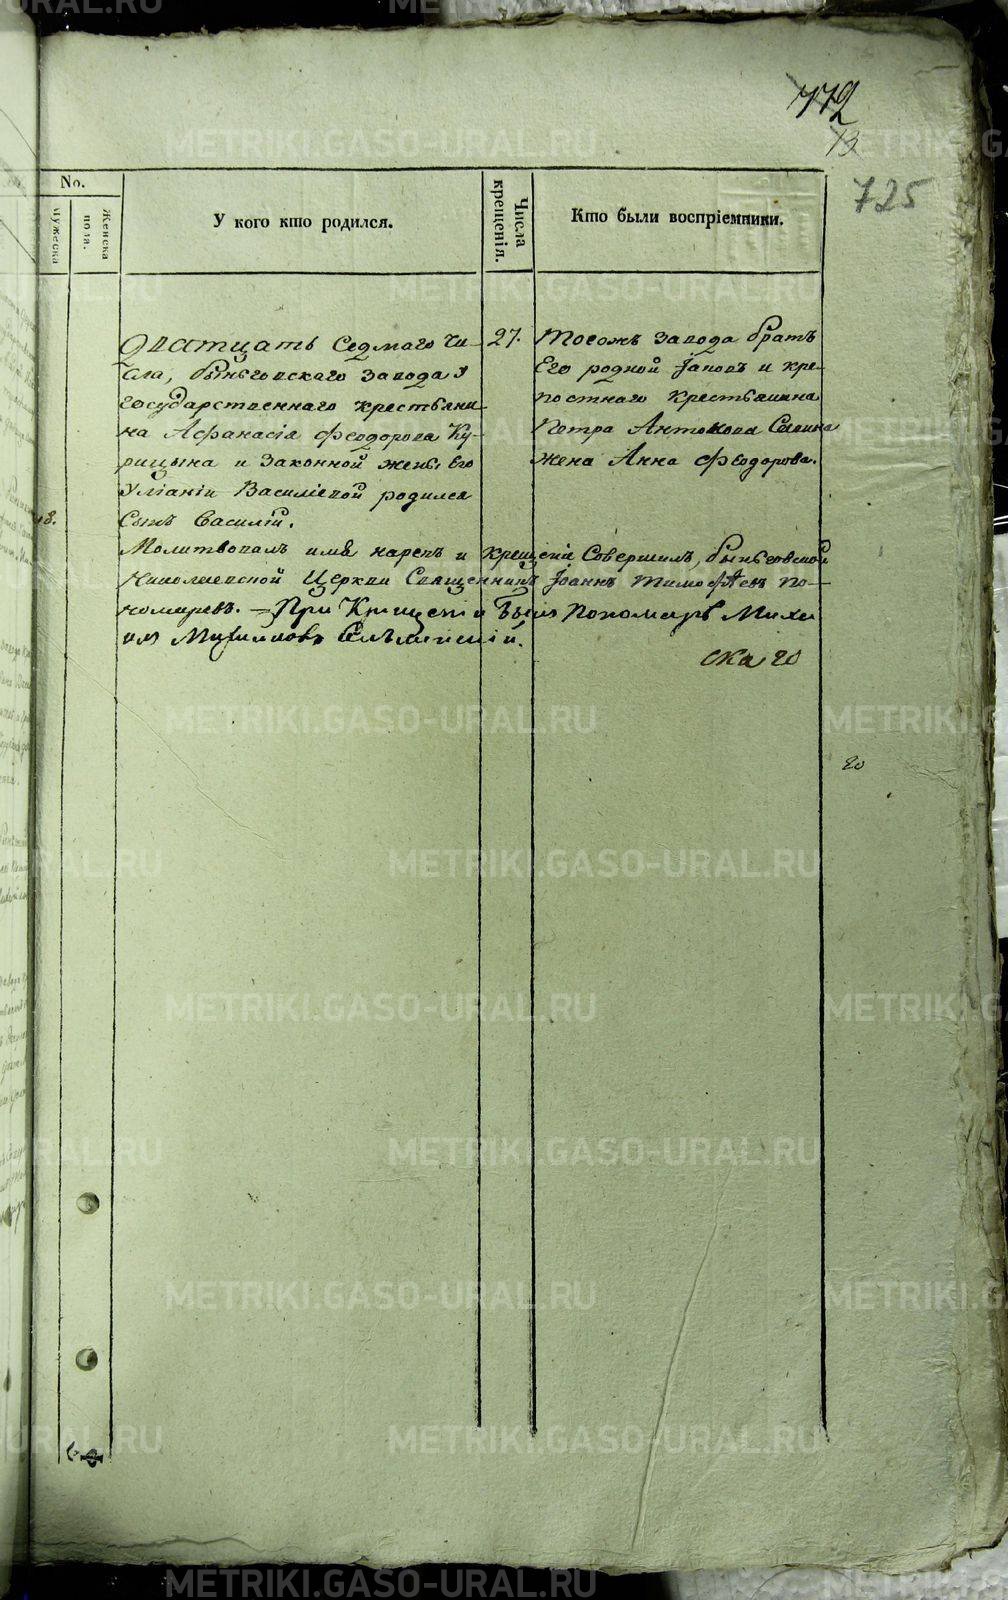 772
13
725
No.
мужеска
женска пола.
У кого кто родился.
Числа крещенія.
Кто были воспріемники.
Дватцать Седмаго Чи-
сла, быньговскаго завода У
государственнаго крестьяни-
на Афанасія Феодорова Ку-
рицына и законной жены его
Уліаніи Василіевой родился
сынъ Василій.
27.
Тогожъ завода братъ
Его родной Іаковъ и кре-
постнаго крестьянина
Петра Антонова
жена Анна Феодорова.
18.
Молитвовалъ имя нарекъ и крещеніе Совершилъ, быньговской
Николаевской Церкви Священникъ Іоаннъ Тимофеевъ По-
номаревъ. — При Крещеніи былъ Пономарь Миха
илъ
скаго
20
METRIKI.GASO-URAL.RU